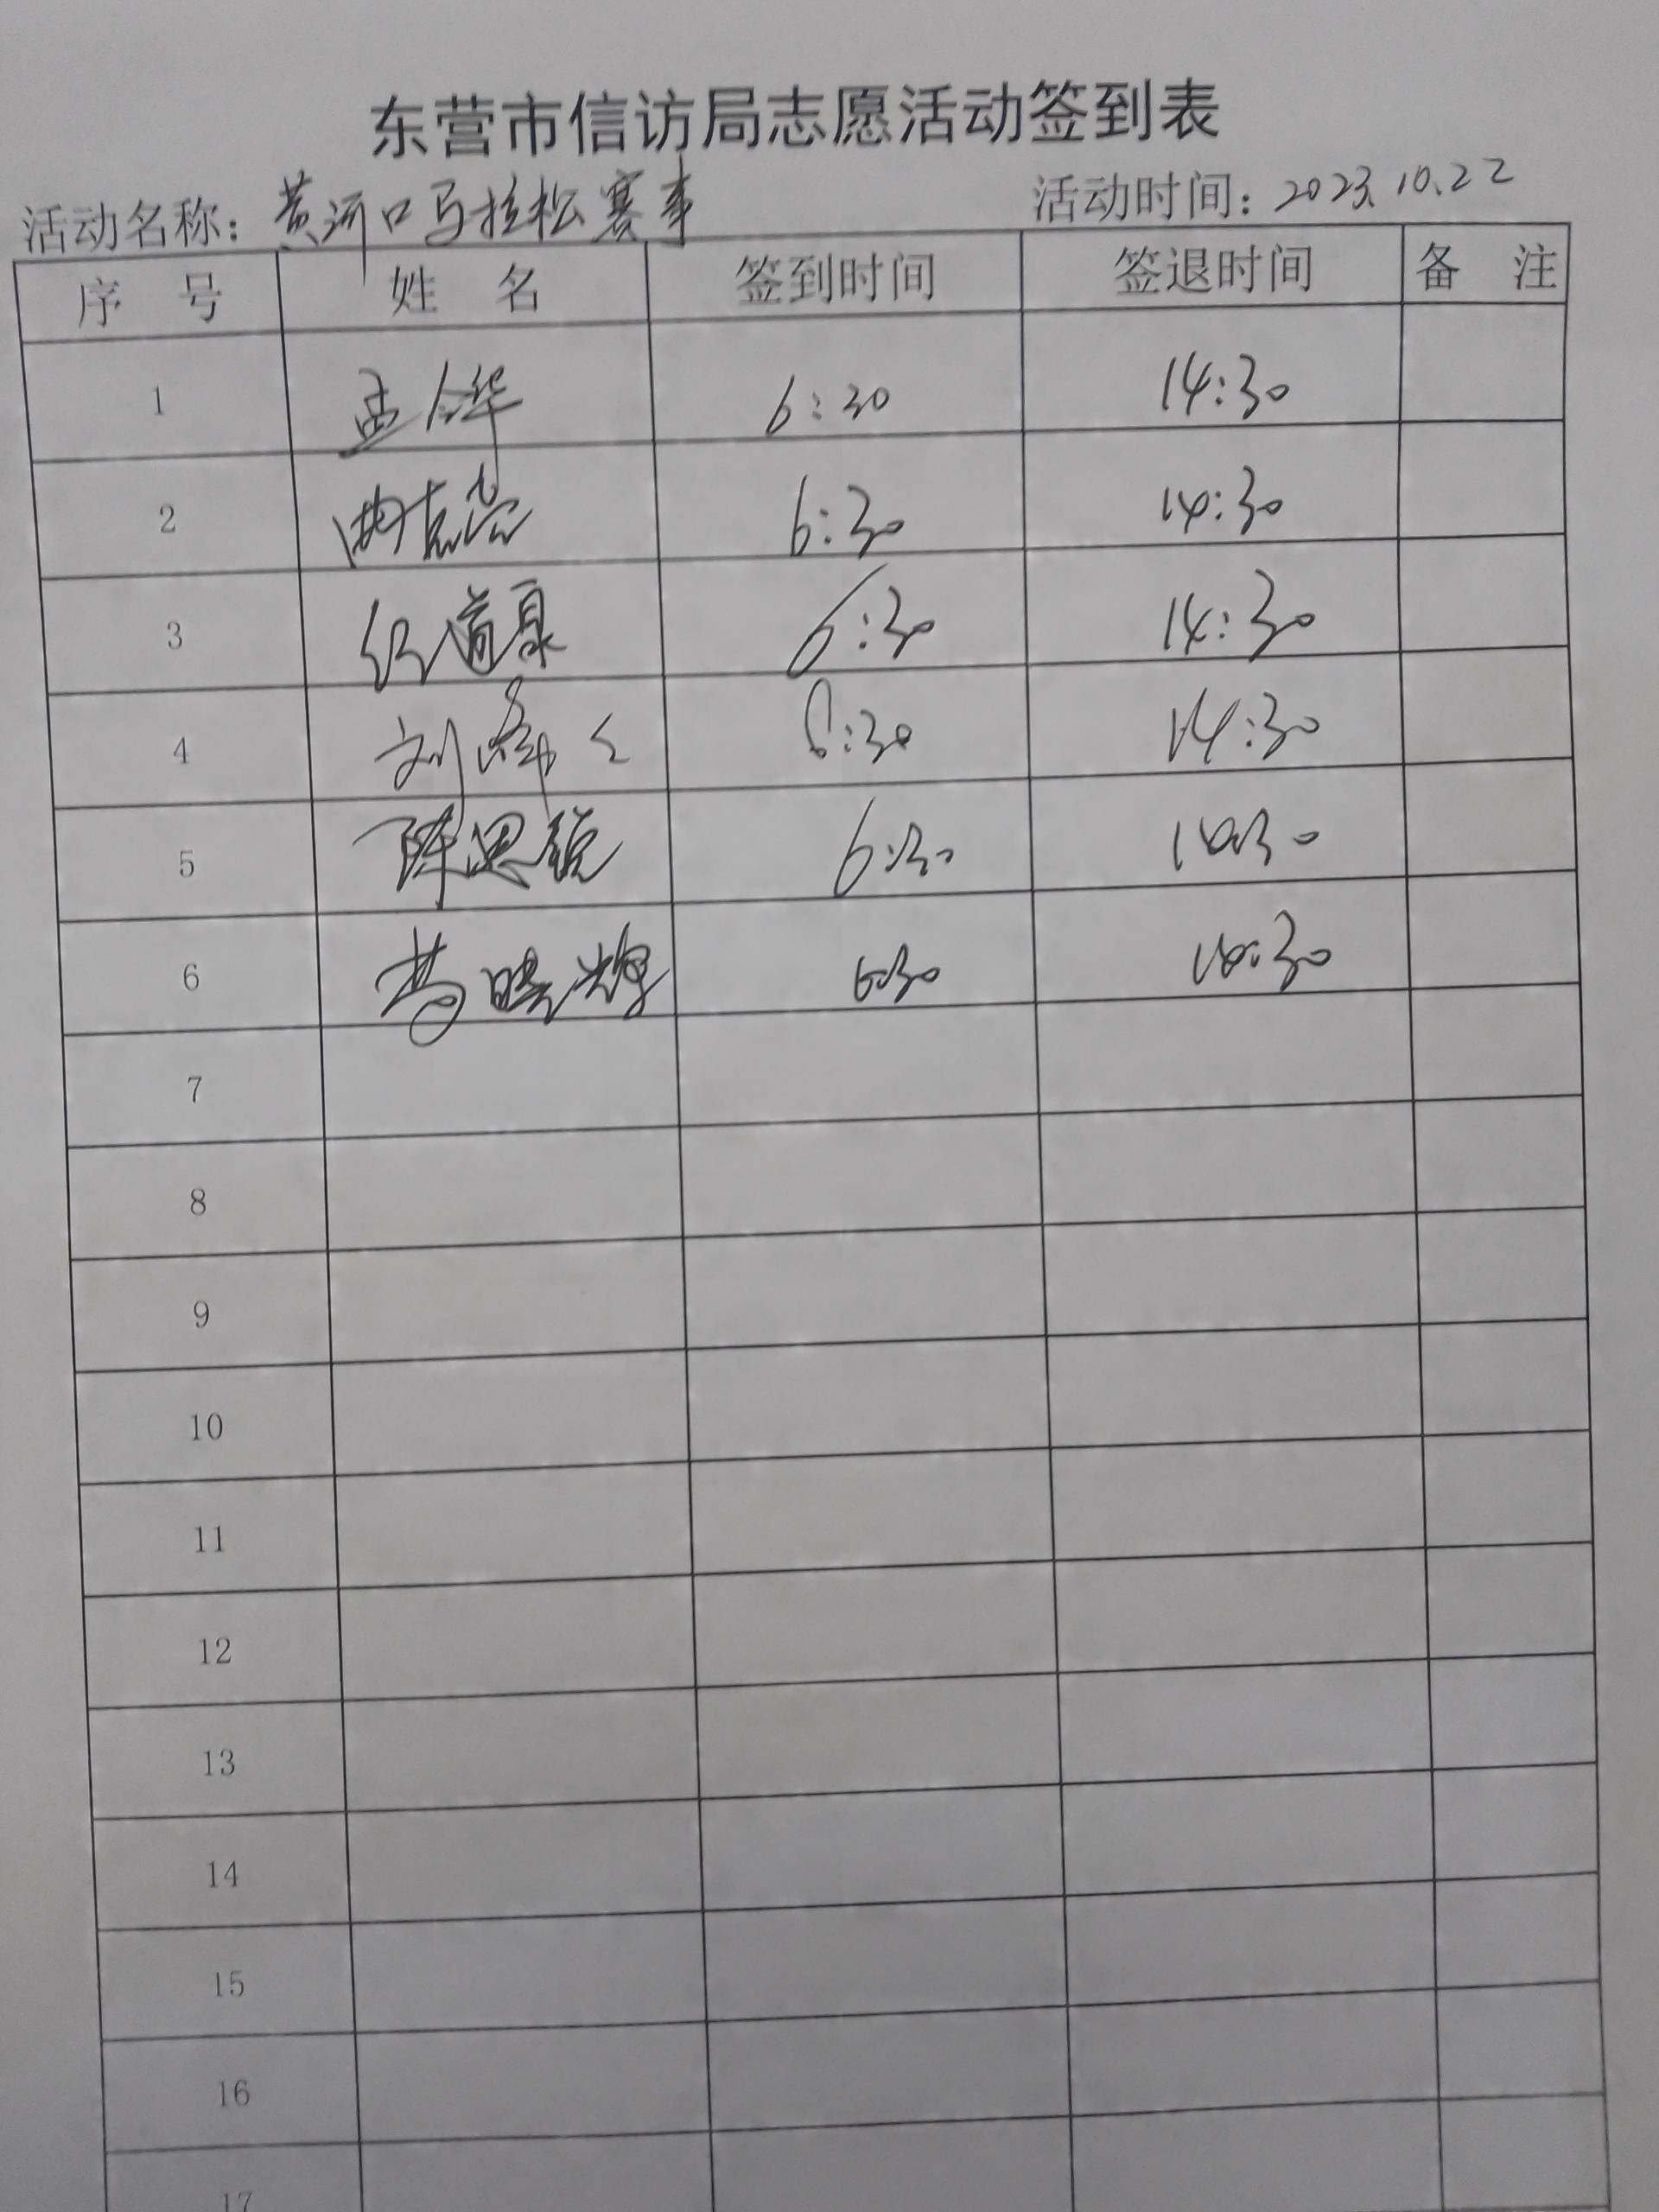 东营市信访局志愿活动签到表
活动名称：黄河口马拉松赛事 活动时间：2023.10.22
序 号 姓 名 签到时间 签退时间 备 注
1 孟令华 6:30 14:30
2 曲 6:30 14:30
3 道泉 6:30 14:30
4 刘 6:30 14:30
5 陈思锐 6:30 14:30
6 晓辉 6:30 14:30
7
8
9
10
11
12
13
14
15
16
17